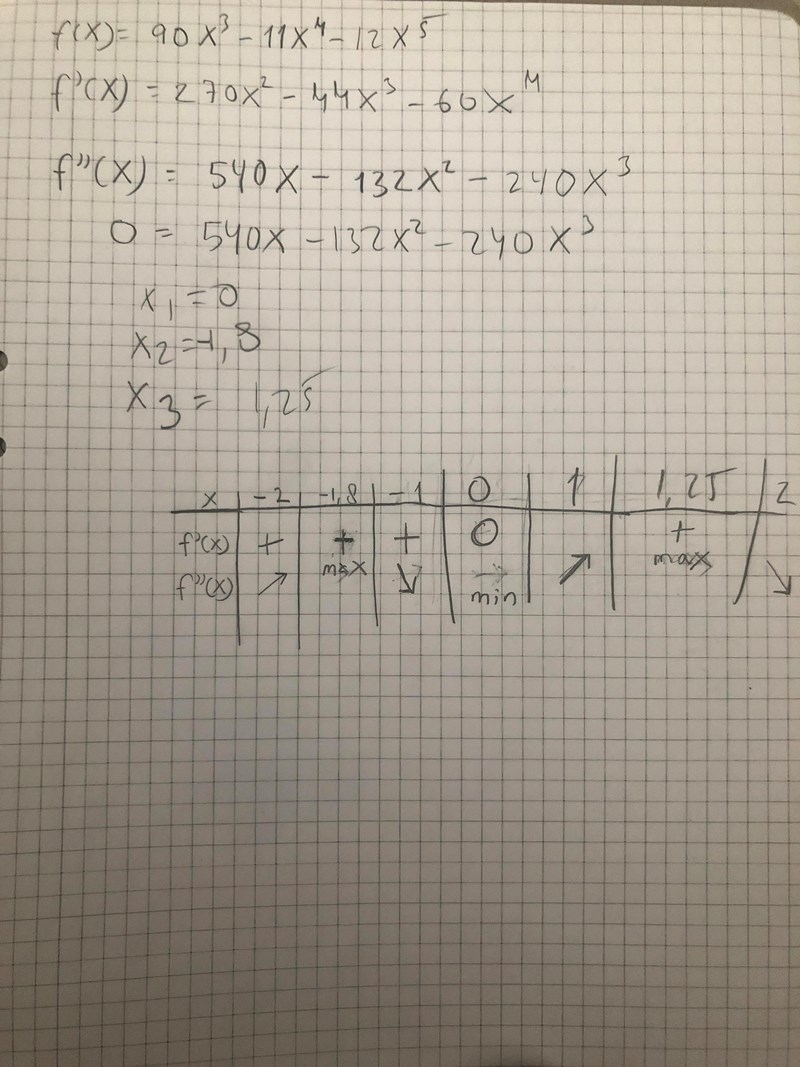 f(x) = 90x³ - 11x⁴ - 12x⁵
f'(x) = 270x² - 44x³ - 60x⁴
f''(x) = 540x - 132x² - 240x³
0 = 540x - 132x² - 240x³
x₁ = 0
x₂ = -1,8
x₃ = 1,25
x | -2 | -1,8 | -1 | 0 | 1 | 1,25 | 2
f'(x) | + | + | + | 0 | | +
f''(x) | ↗ | max | ↘ | min | ↗ | max | ↘